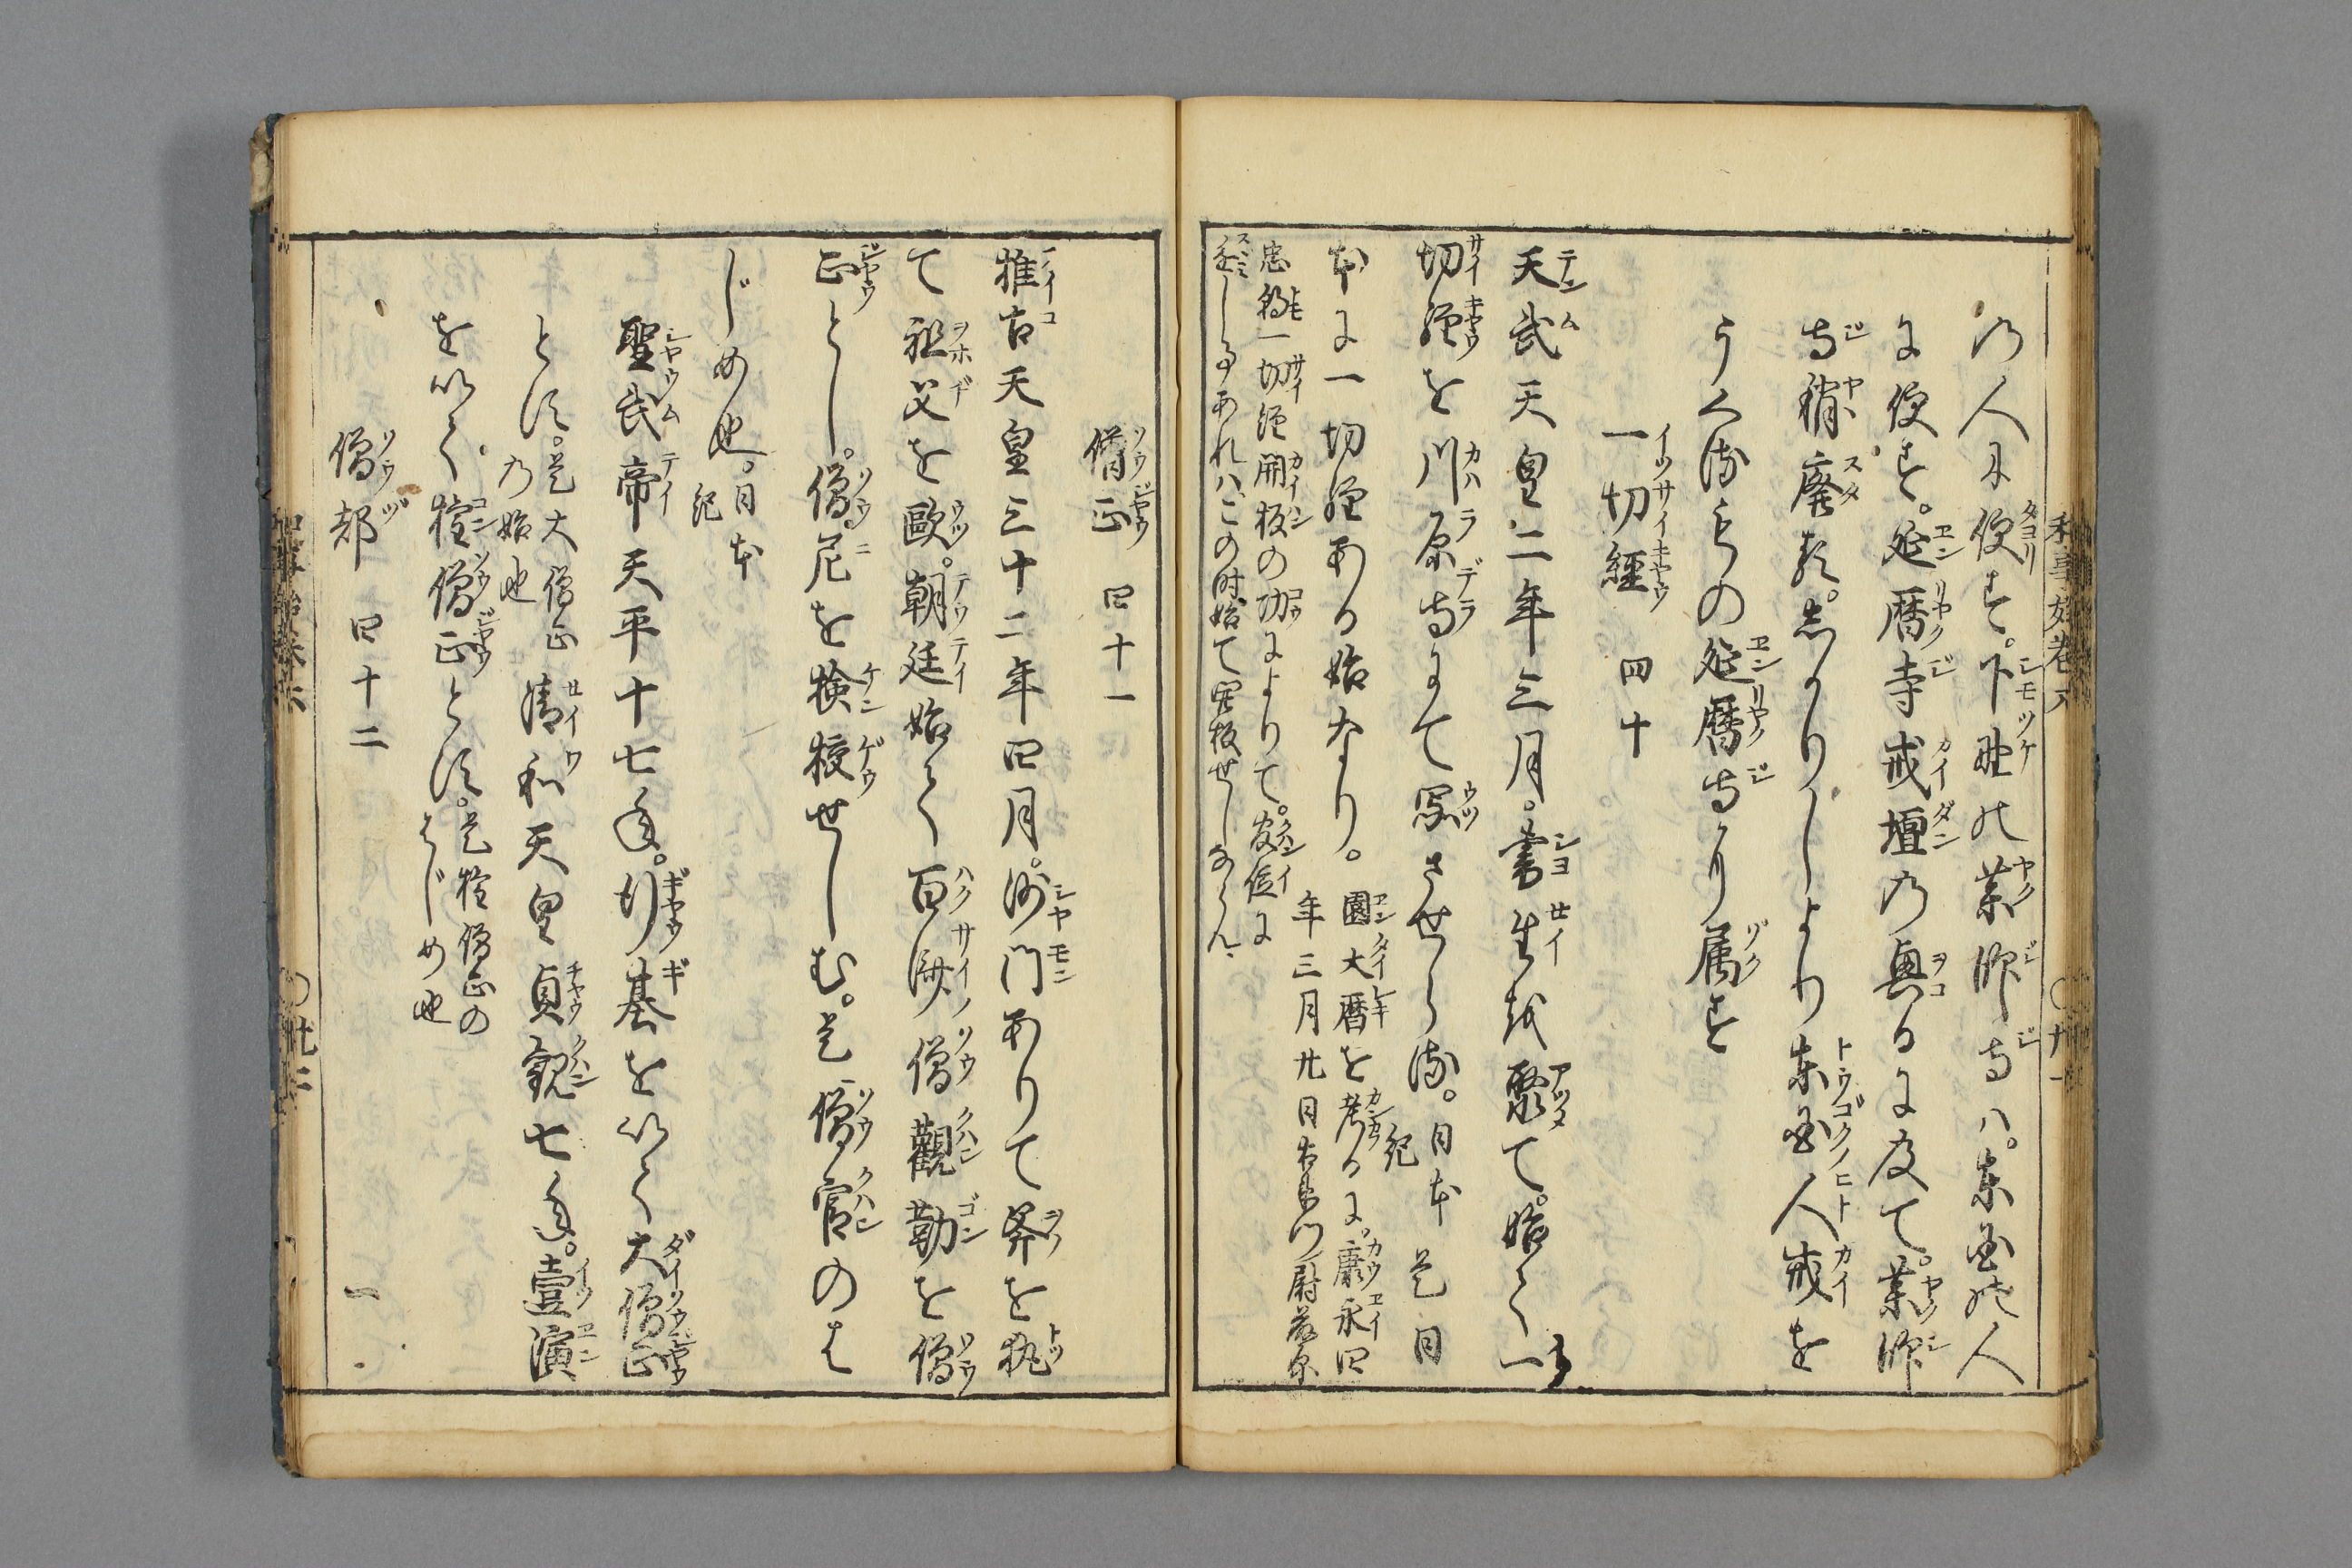 の人に便す。下野の薬師寺ハ。東国の人
に便す。延暦寺戒壇の興るに及て。薬師
寺稍廃る。しかりしより東国人戒を
うくるもの延暦寺に属す
一切経 四十
天武天皇二年三月。書生を聚て。始て一
切経を川原寺にて写させらる。日本紀 是日
本に一切経ある始なり。園大暦を考るに。康永四
年三月廿日左衛門尉藤原
忠 一切経開板の功によりて。官位に
しるあれハ、この時始て開板せしならん
和事始巻六 〇廿一
僧正 四十一
推古天皇三十二年四月。沙門ありて斧を執
て祖父を殴。朝廷始て百済僧観勒を僧
正とし。僧尼を検校せしむ。是僧官のは
じめ也。日本紀
聖武帝天平十七年。行基を以て大僧正
とす。是大僧正の始也 清和天皇貞観七年。壹演
を以て権僧正とす。是権僧正のはじめ也
僧都 四十二
和事始巻六 〇廿二